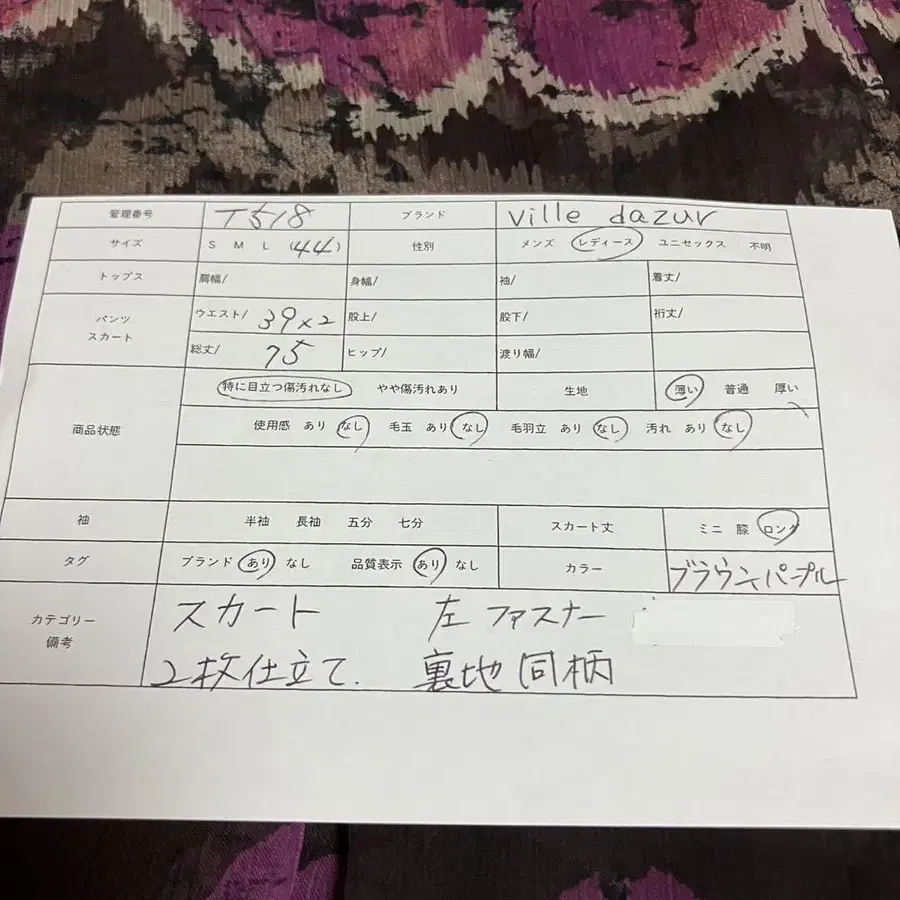 管理番号 T518 ブランド ville dazur
サイズ S M L (44) 性別 メンズ レディース ユニセックス 不明
トップス 肩幅/ 身幅/ 袖/ 着丈/
パンツ スカート ウエスト/ 39×2 股上/ 股下/ 裄丈/
総丈/ 75 ヒップ/ 渡り幅/
商品状態 特に目立つ傷汚れなし やや傷汚れあり 生地 薄い 普通 厚い
使用感 あり なし 毛玉 あり なし 毛羽立 あり なし 汚れ あり なし
袖 半袖 長袖 五分 七分 スカート丈 ミニ 膝 ロング
タグ ブランド あり なし 品質表示 あり なし カラー ブラウン×パープル
カテゴリー 備考 スカート 左ファスナー
2枚仕立て. 裏地同柄